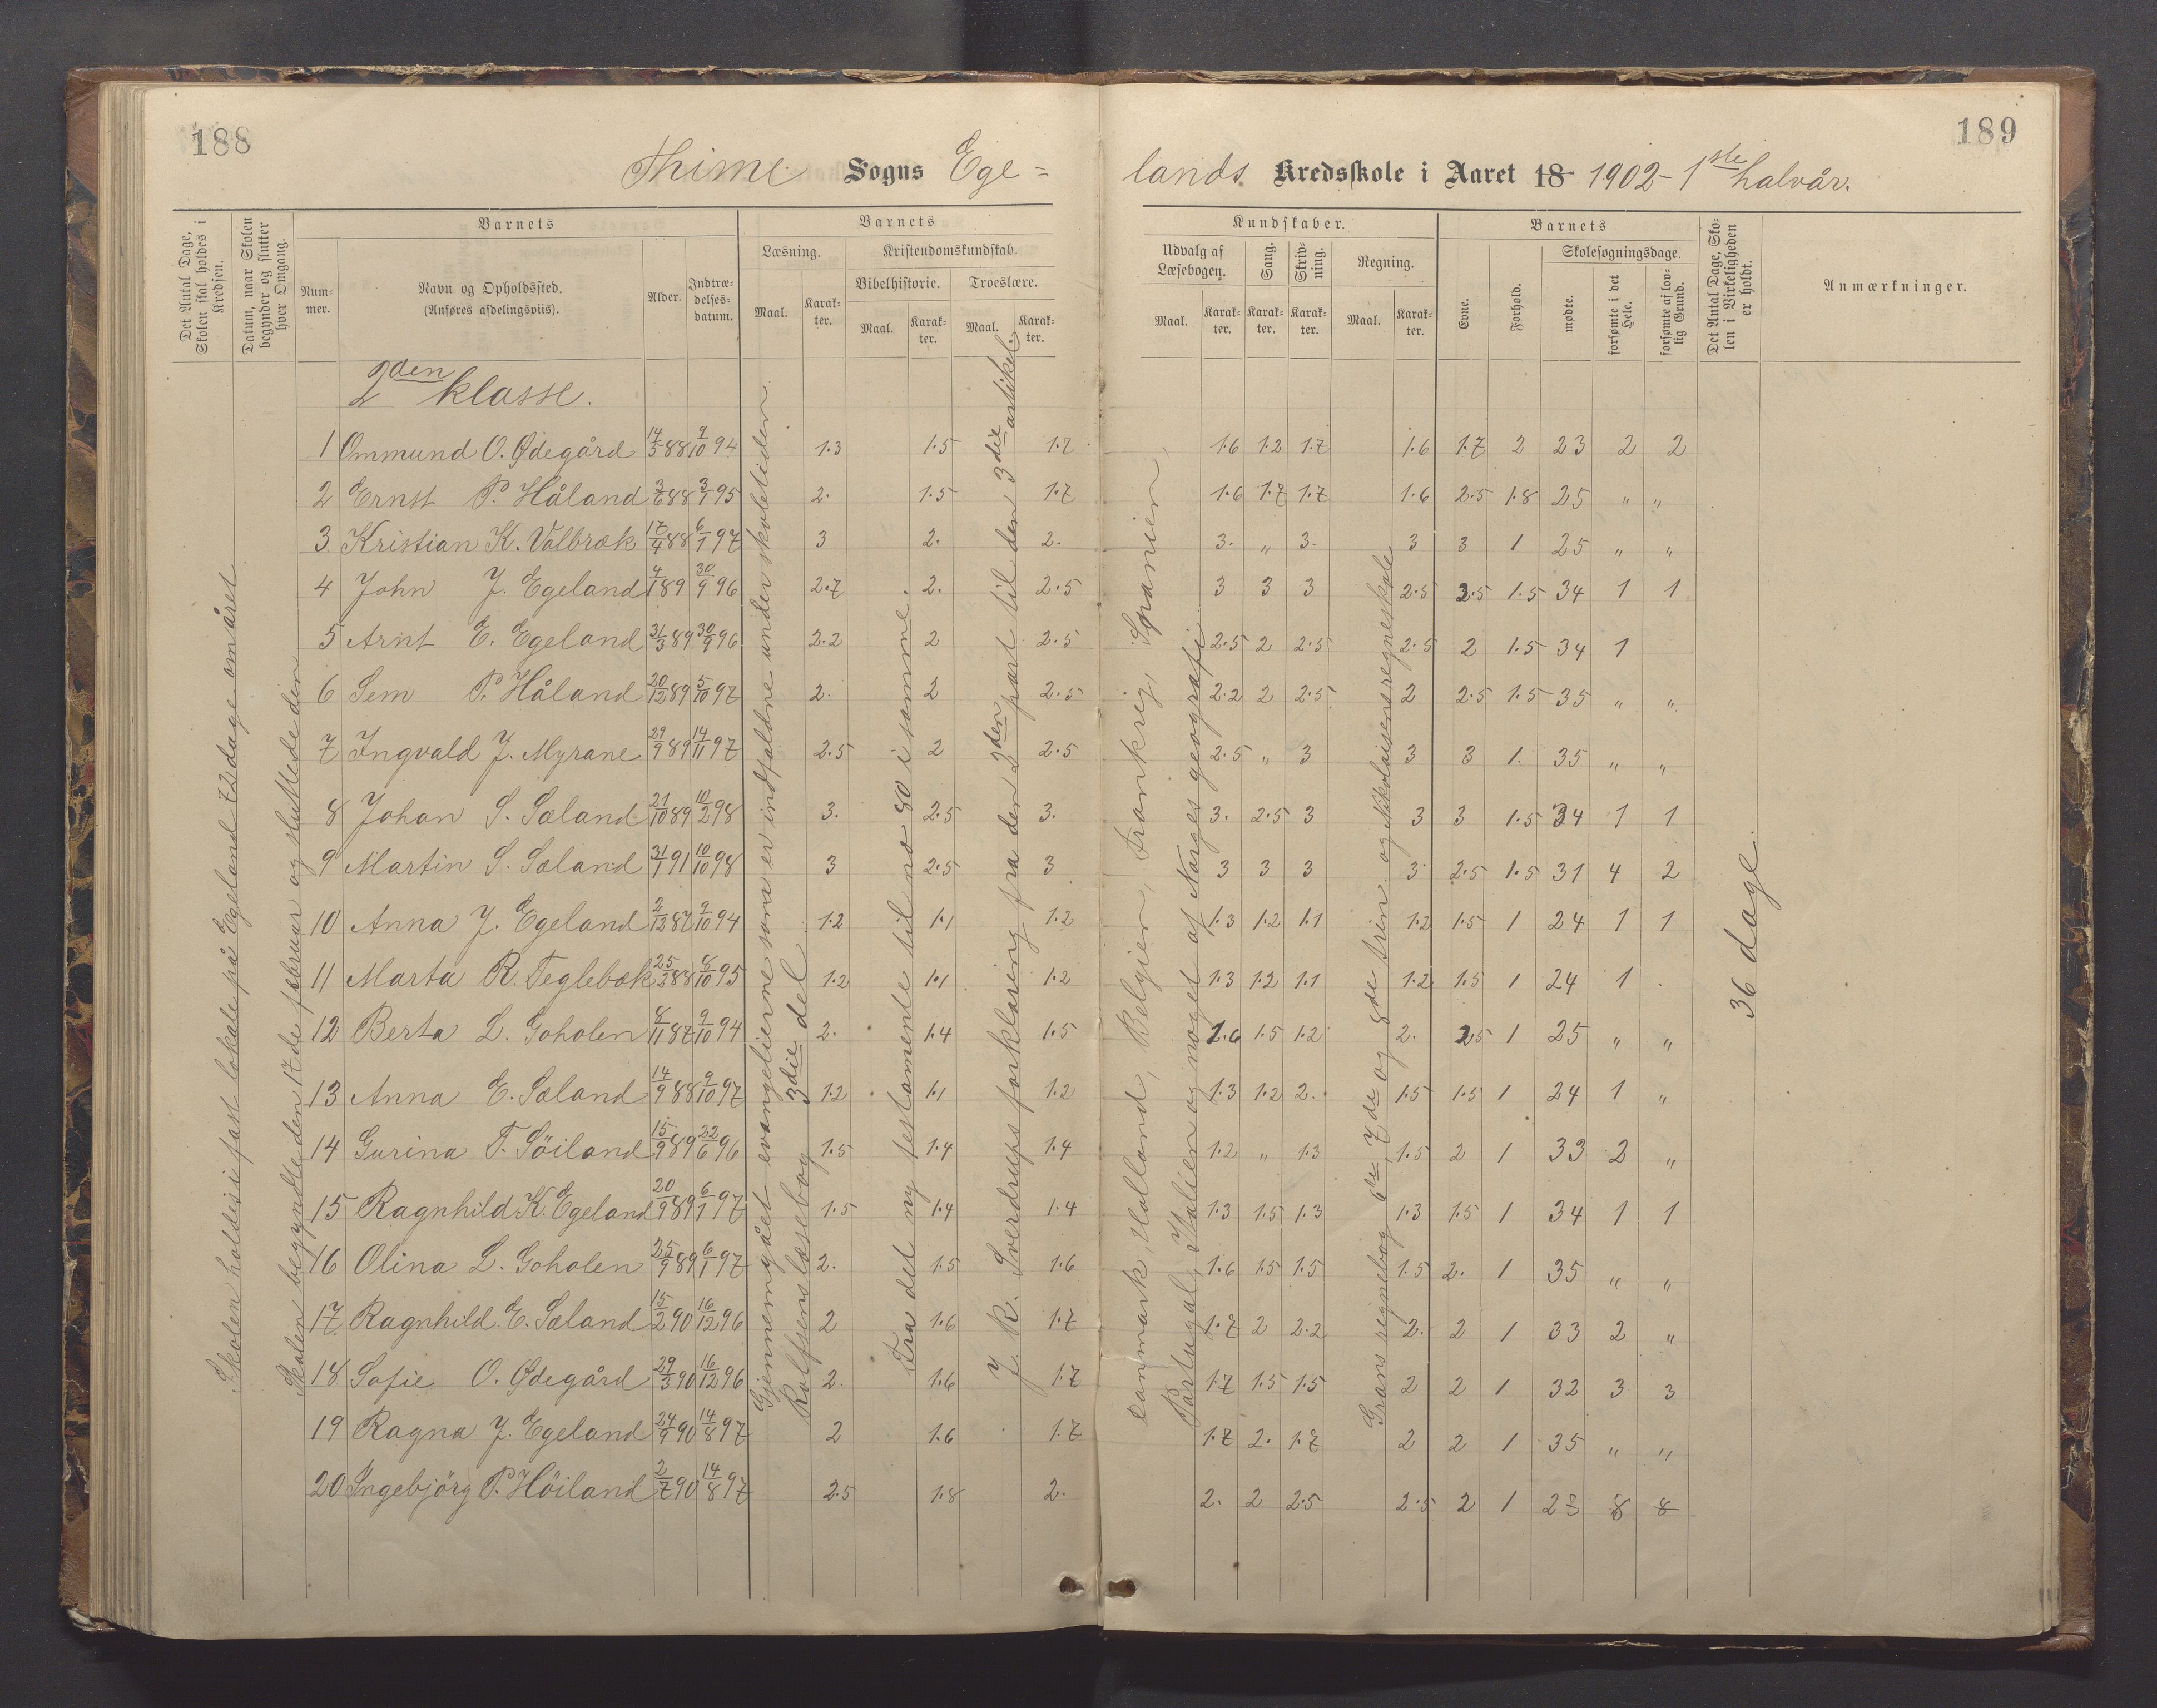 188
189
Thime Sogns Ege=
lands Kredsskole i Aaret 18 1902 - 1ste halvår.
Det Antal Dage, Skolen skal holdes i Kredsen.
Datum, naar Skolen begynder og slutter hver Omgang.
Barnets
Num-mer.
Navn og Opholdssted.
(Anføres afdelingsviis).
Alder.
Indtræ-delses-datum.
Barnets
Læsning.
Kristendomskundskab.
Bibelhistorie.
Troeslære.
Maal. Karak-ter. Maal. Karak-ter. Maal. Karak-ter.
Kundskaber.
Udvalg af Læsebogen.
Sang.
Skriv-ning.
Regning.
Maal. Karak-ter. Karak-ter. Karak-ter. Maal. Karak-ter.
Barnets
Evne.
Forhold.
Skolesøgningsdage.
mødte.
forsømte i det Hele.
forsømte af lov-lig Grund.
Det Antal Dage, Sko-len i Virkeligheden er holdt.
Anmærkninger.
2den klasse.
1 Ommund O. Ødegård 14/5 88 9/10 94 1.3 1.5 1.7 1.6 1.2 1.7 1.6 1.7 2 23 2 2
2 Ernst P. Håland 3/6 88 3/1 95 2. 1.5 1.7 1.6 1.7 1.7 1.6 2.5 1.8 25 " "
3 Kristian K. Valbræk 17/4 88 6/1 97 3 2. 2. 3. " 3. 3 3 1 25 " "
4 John J. Egeland 4/1 89 30/9 96 2.7 2. 2.5 3 3 3 2.5 2.5 1.5 34 1 1
5 Arnt E. Egeland 31/3 89 30/9 96 2.2 2 2.5 2.5 2 2.5 2.5 2 1.5 34 1
6 Sem P. Håland 20/12 89 5/10 97 2. 2 2.5 2.2 2 2.5 2 2.5 1.5 35 " "
7 Ingvald J. Myrane 29/9 89 14/11 97 2.5 2 2.5 2.5 " 3 3 3 1. 35 " "
8 Johan S. Sæland 21/10 89 10/2 98 3. 2.5 3. 3. 2.5 3 3 3 1.5 34 1 1
9 Martin S. Sæland 31/1 91 10/10 98 3 2.5 3 3 3 3 3 2.5 1.5 31 4 2
10 Anna J. Egeland 2/12 87 9/10 94 1.2 1.1 1.2 1.3 1.2 1.1 1.2 1.5 1 24 1 1
11 Marta R. Teglebæk 25/3 88 8/10 95 1.2 1.1 1.2 1.3 1.2 1.1 1.2 1.5 1 24 1
12 Berta L. Goholen 8/11 87 9/10 94 2. 1.4 1.5 1.6 1.5 1.2 2. 2.5 1 25 " "
13 Anna E. Sæland 14/9 88 9/10 97 1.2 1.1 1.2 1.3 1.2 2. 1.5 1.5 1 24 1 "
14 Gurina T. Söiland 15/9 89 22/6 96 1.5 1.4 1.4 1.2 " 1.3 1.5 2 1 33 2 "
15 Ragnhild K. Egeland 20/9 89 6/1 97 1.5 1.4 1.4 1.3 1.5 1.3 1.3 1.5 1 34 1 1
16 Olina L. Goholen 25/9 89 6/1 97 2. 1.5 1.6 1.6 1.5 1.5 1.5 2. 1 35 " "
17 Ragnhild E. Sæland 15/2 90 16/12 96 2 1.6 1.7 1.7 2 2.2 2. 2 1 33 2 "
18 Sofie O. Ødegård 29/3 90 16/12 96 2. 1.6 1.7 1.7 1.5 1.5 2 2 1 32 3 3
19 Ragna J. Egeland 24/9 90 14/8 97 2 1.6 1.7 1.7 2. 1.7 2 2 1 35 " "
20 Ingebjörg P. Höiland 2/7 90 14/8 97 2.5 1.8 2. 2. 2 2.5 2.5 2 1 23 8 8
Skolen holdes i fast lokale på Egeland 72 dage om året
Skolen begyndte den 17de februar og sluttede den
Gjennemgået evangelierne som er indfaldne under skoletiden
Rolfsens læsebog 3die del
Fra det ny testamente til no 80 i samme.
J. R. Sverdrups forklaring fra den 2den part til den 3die artikel.
Danmark, Holland, Belgien, Frankrig, Spanien,
Portugal, Italien og noget af Norges geografi
Grans regnebog 6te, 7de og 8de trin og Nikolaisens regneskole
36 dage.